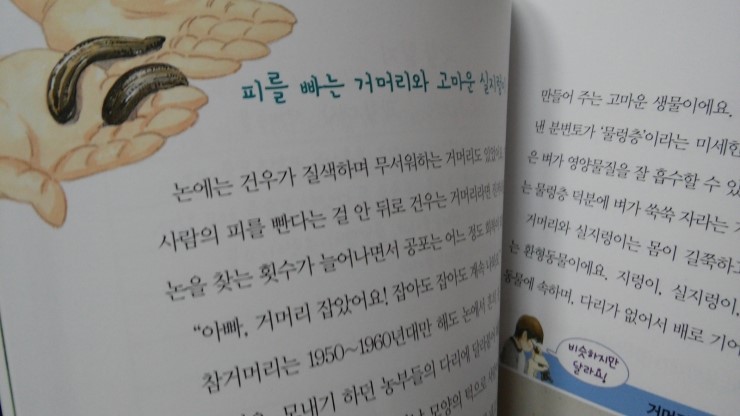 피를 빠는 거머리와 고마운
논에는 건우가 질색하며 무서워하는 거머리도
사람의 피를 빤다는 걸 안 뒤로 건우는 거머리라면
논을 찾는 횟수가 늘어나면서 공포는 어느 정도
“아빠, 거머리 잡았어요! 잡아도 잡아도 계속
참거머리는 1950~1960년대만 해도 논에서
모내기 하던 농부들의 다리에
모양의 턱으로
만들어 주는 고마운 생물이에요.
낸 분변토가 ‘물렁층’이라는 미세한
은 벼가 영양물질을 잘 흡수할 수
는 물렁층 덕분에 벼가 쑥쑥 자라는
거머리와 실지렁이는 몸이 길쭉하고
는 환형동물이에요. 지렁이, 실지렁이,
동물에 속하며, 다리가 없어서 배로
비슷하지만
달라요!